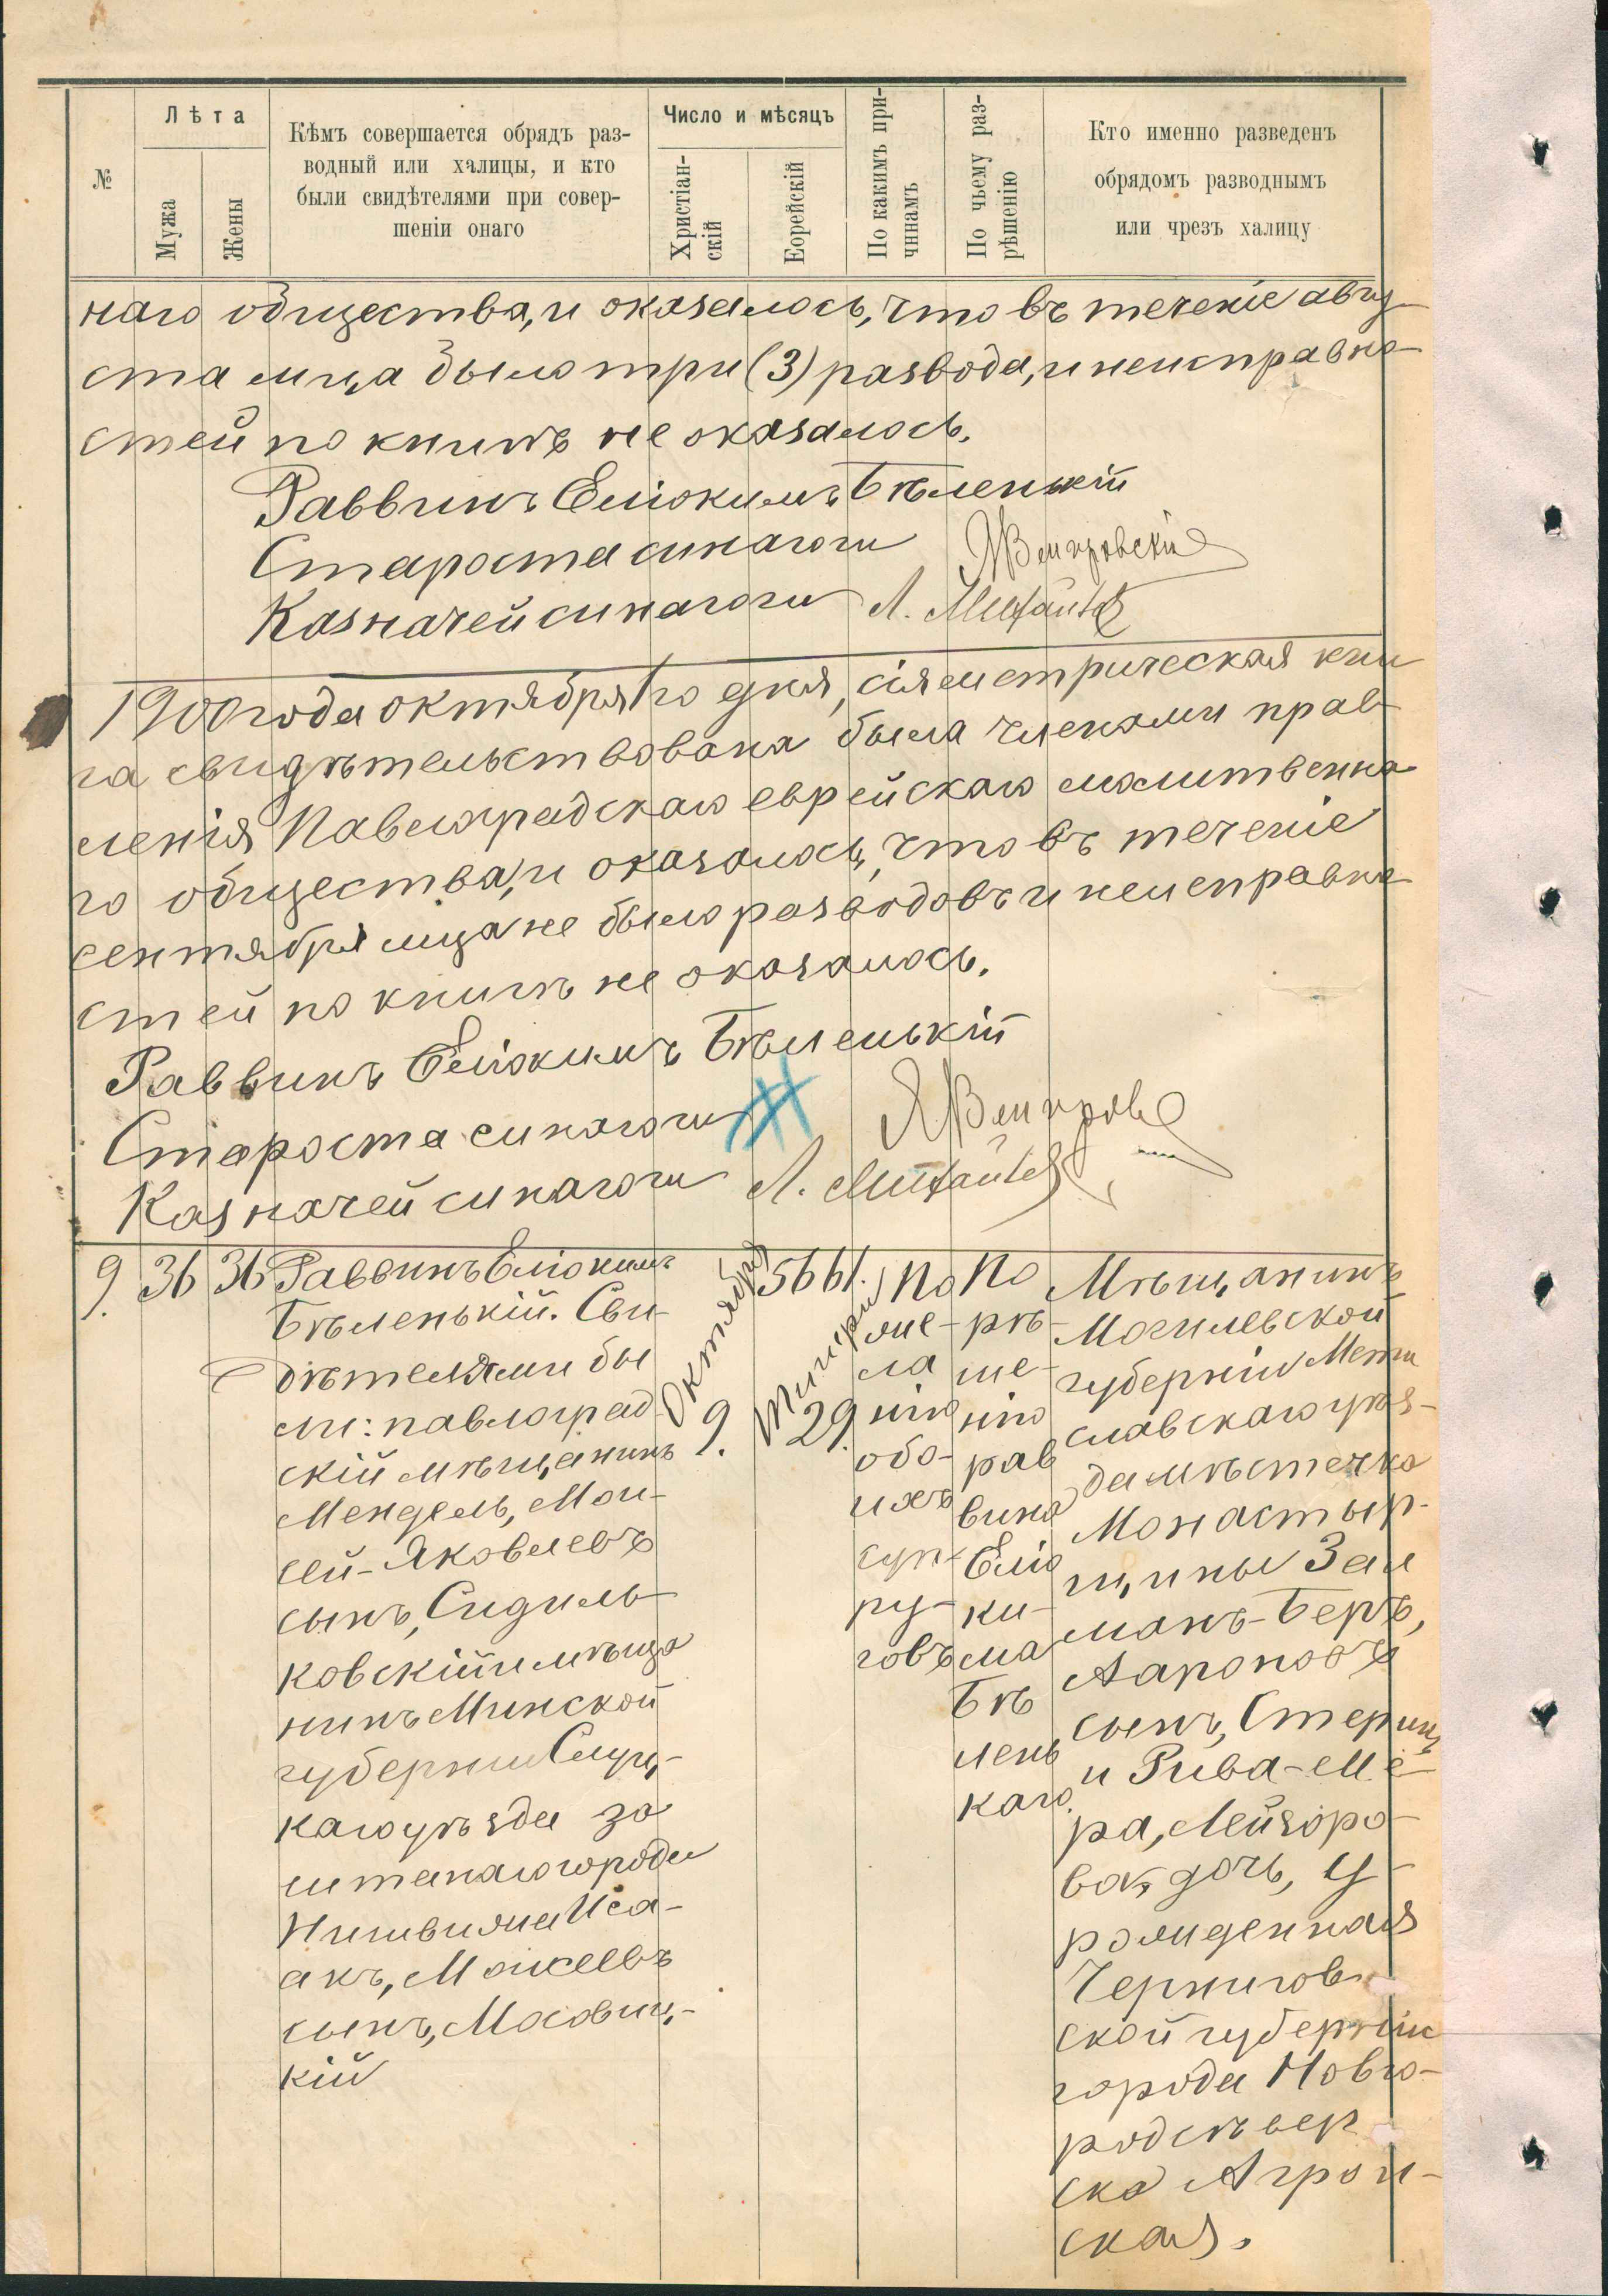 №
Лѣта
Мужа
Жены
Кѣмъ совершается обрядъ раз-
водный или халицы, и кто
были свидѣтелями при совер-
шеніи онаго
Число и мѣсяцъ
Христіан-
скій
Еорейскій
По какимъ при-
чинамъ
По чьему раз-
рѣшенію
Кто именно разведенъ
обрядомъ разводнымъ
или чрезъ халицу
наго общества, и оказалось, что въ теченіе авгу-
ста м-ца было три (3) развода, и неисправно-
стей по книгѣ не оказалось.
Раввинъ Еліокимъ Бѣленькій
Староста синагоги
Казначей синагоги Л.
1900 года октября 1го дня, сія метрическая кни
га свидѣтельствована была членами прав-
ленія Павлоградскаго еврейскаго молитвенна-
го общества, и оказалось, что въ теченіе
сентября м-ца не было разводовъ и неисправно
стей по книгѣ не оказалось.
Раввинъ Еліокимъ Бѣленькій
Староста синагоги
Казначей синагоги Л.
9.
36
36
Раввинъ Еліокимъ
Бѣленькій. Сви-
дѣтелями бы
ли: павлоград-
скій мѣщанинъ
Мендель, Мои-
сей-Яковлевъ
сынъ, Сидиль-
ковскій и мѣща
нинъ Минской
губерніи Слуц-
каго уѣзда за
штатнаго города
Нисвижа Иса-
акъ, Моисеевъ
сынъ, Мосовиц-
кій
Октября
9.
5661.
Тишри
29.
По
же-
ла
нію
обо-
ихъ
суп-
ру-
говъ
По
рѣ-
ше-
нію
рав
вина
Еліо
ки-
ма
Бѣ
лень
каго.
Мѣщанинъ
Могилевской
губерніи Мсти
славскаго уѣз-
да мѣстечка
Монастыр-
щины Зал
манъ-Беръ,
Аароновъ
сынъ, Стеринъ
и Рива-Ме-
ра, Лейзоро-
ва дочь, у-
рожденная
Чернигов-
ской губерніи
города Новго-
родсѣвер
ска Агрон-
ская.